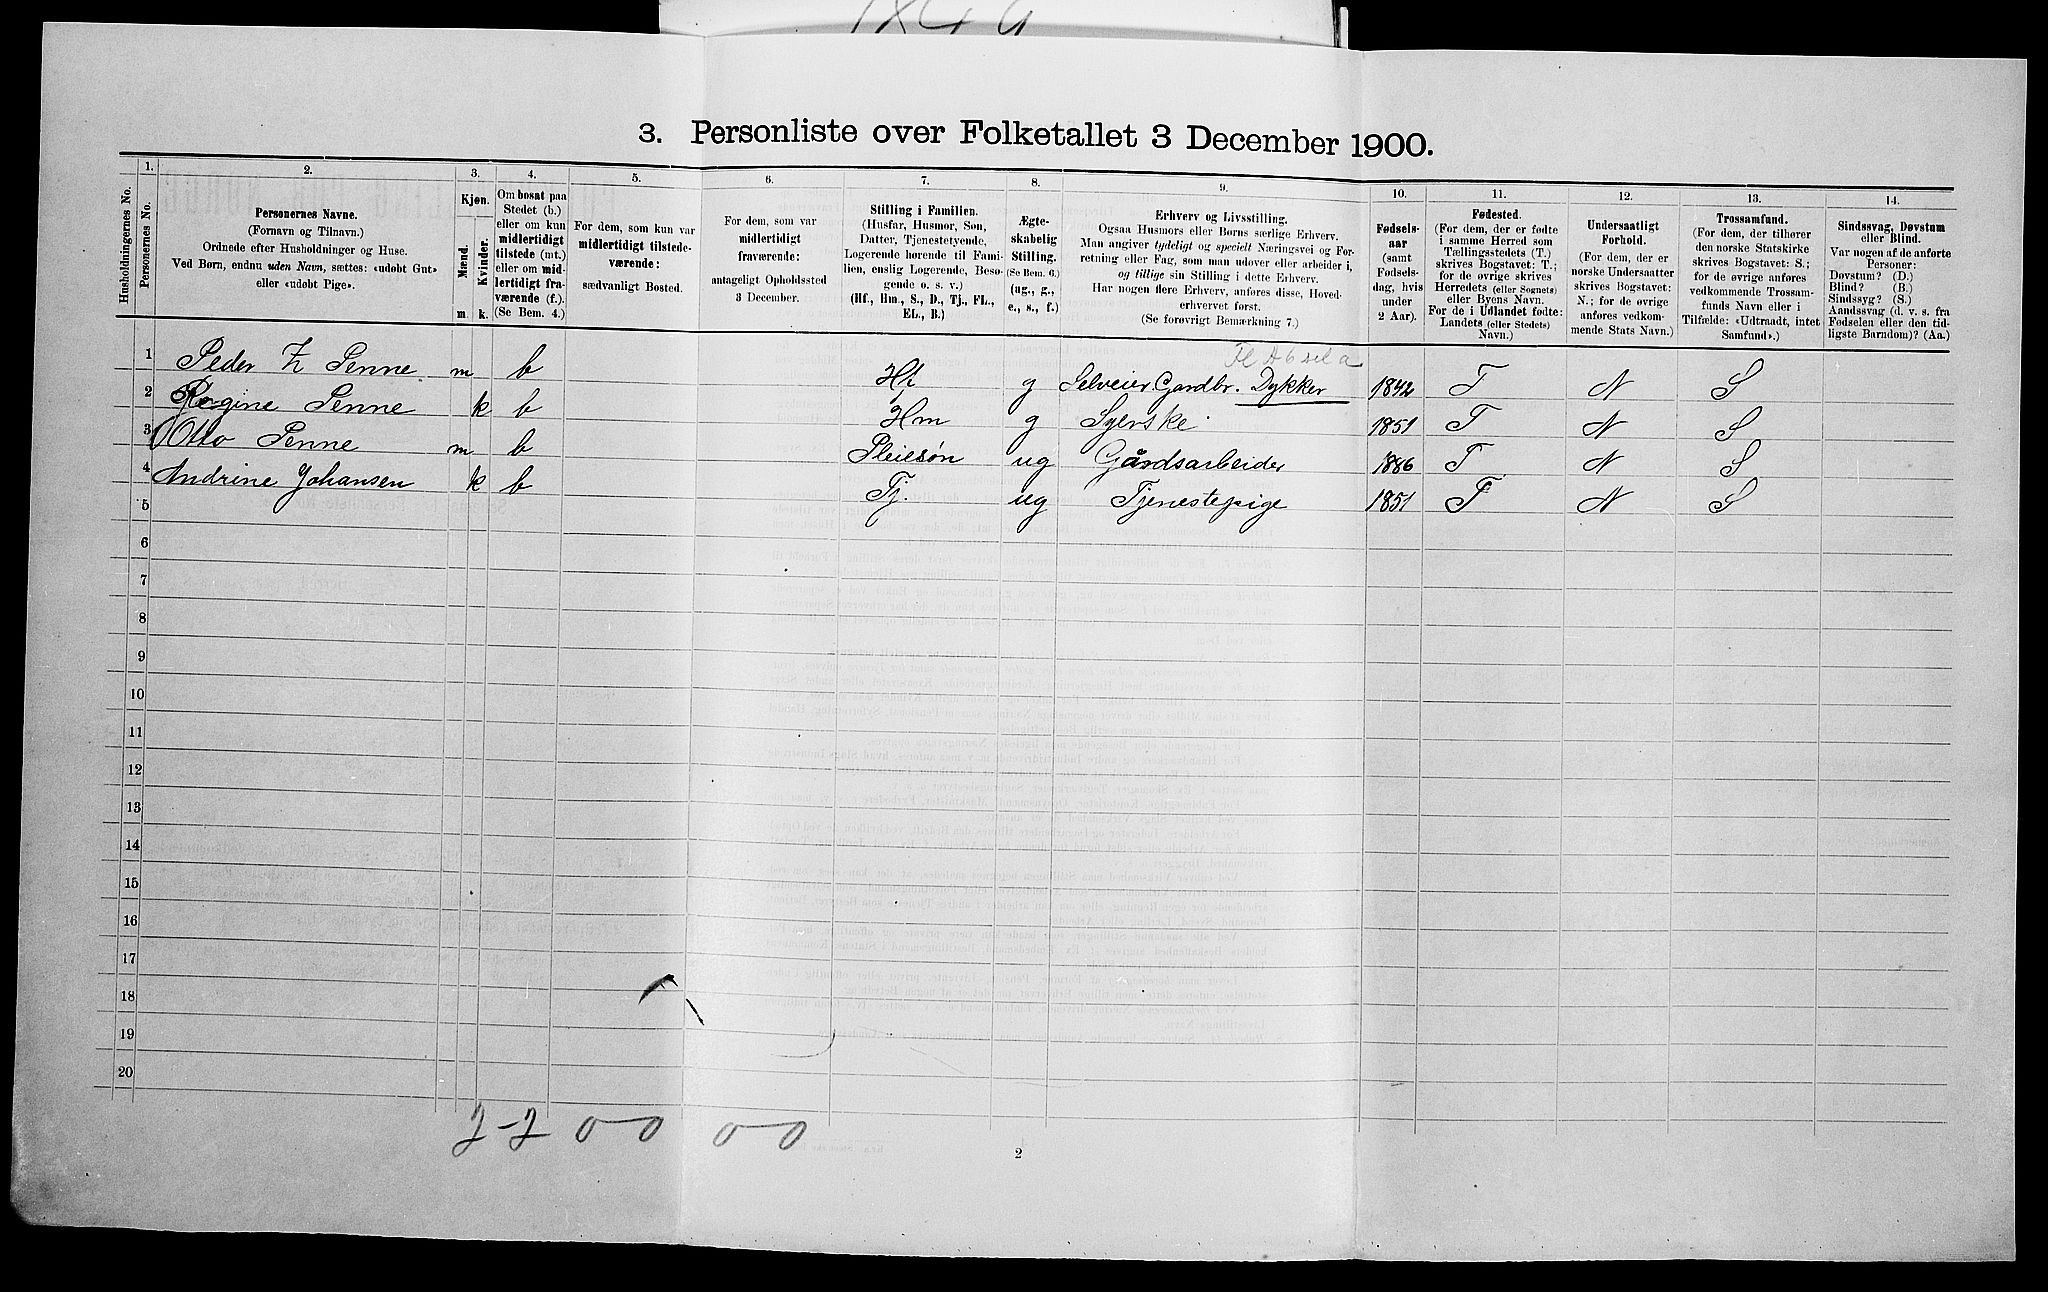 3. Personliste over Folketallet 3 December 1900.
1. 2. 3. 4. 5. 6. 7. 8. 9. 10. 11. 12. 13. 14.
Husholdningernes No.
Personernes No.
Personernes Navne.
(Fornavn og Tilnavn.)
Ordnede efter Husholdninger og Huse.
Ved Børn, endnu uden Navn, sættes: «udøbt Gut»
eller «udøbt Pige».
Kjøn.
Mænd.
Kvinder.
m. k.
Om bosat paa
Stedet (b.)
eller om kun
midlertidigt
tilstede (mt.)
eller om mid-
lertidigt fra-
værende (f.).
(Se Bem. 4.)
For dem, som kun var
midlertidigt tilstede-
værende:
sædvanligt Bosted.
For dem, som var
midlertidigt
fraværende:
antageligt Opholdssted
3 December.
Stilling i Familien.
(Husfar, Husmor, Søn,
Datter, Tjenestetyende,
Logerende hørende til Fami-
lien, enslig Logerende, Besø-
gende o. s. v.)
(Hf., Hm., S., D., Tj., FL.,
EL., B.)
Ægte-
skabelig
Stilling.
(Se Bem. 6.)
(ug., g.,
e., s., f.)
Erhverv og Livsstilling.
Ogsaa Husmors eller Børns særlige Erhverv.
Man angiver tydeligt og specielt Næringsvei og For-
retning eller Fag, som man udøver eller arbeider i,
og tillige sin Stilling i dette Erhverv.
Har nogen flere Erhverv, anføres disse, Hoved-
erhvervet først.
(Se forøvrigt Bemærkning 7.)
Fødsels-
aar
(samt
Fødsels-
dag, hvis
under
2 Aar).
Fødested.
(For dem, der er fødte
i samme Herred som
Tællingsstedets (T.)
skrives Bogstavet: T.;
for de øvrige skrives
Herredets (eller Sognets)
eller Byens Navn.
For de i Udlandet fødte:
Landets (eller Stedets)
Navn.)
Undersaatligt
Forhold.
(For dem, der er
norske Undersaatter
skrives Bogstavet:
N.; for de øvrige
anføres vedkom-
mende Stats Navn.)
Trossamfund.
(For dem, der tilhører
den norske Statskirke
skrives Bogstavet: S.;
for de øvrige anføres
vedkommende Trossam-
funds Navn eller i
Tilfælde: «Udtraadt, intet
Samfund».)
Sindssvag, Døvstum
eller Blind.
Var nogen af de anførte
Personer:
Døvstum? (D.)
Blind? (B.)
Sindssyg? (S.)
Aandssvag (d. v. s. fra
Fødselen eller den tid-
ligste Barndom)? (Aa.)
1 Peder Z Penne m b Hf g Selveier. Gardbr. Dykker 1842 T N S
2 Regine Penne k b Hm g Syerske 1851 T N S
3 Otto Penne m b Pleiesøn ug Gårdsarbeider 1886 T N S
4 Andrine Johansen k b Tj. ug Tjenestepige 1851 T N S
5
6
7
8
9
10
11
12
13
14
15
16
17
18
19
20
2-2 0 0 0 0
2